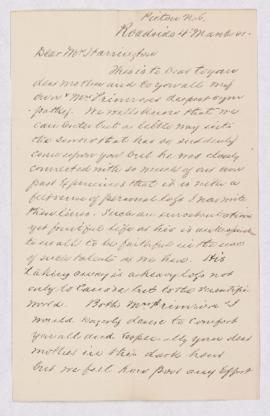 Pictou N.S.
Roadside 4 March 01.
Dear Mrs Harrington
This is to bear to you
dear mother and to you all my
own & Mrs Primrose deepest sym
pathy. We well know that we
can enter but a little way into
the sorrow that has so suddenly
come upon you but he was closely
connected with so much of our own
past experiences that it is with a
feeling of personal loss I now write
these lines. Such an unostentatious
yet fruitful life as his is an
to us all to be faithful in the use
of such talents as we have. His
taking away is a heavy loss not
only to Canada but to the scientific
world. Both Mrs Primrose & I
would eagerly desire to comfort
you all and especially your dear
mother in this dark hour
but we feel how poor any effort